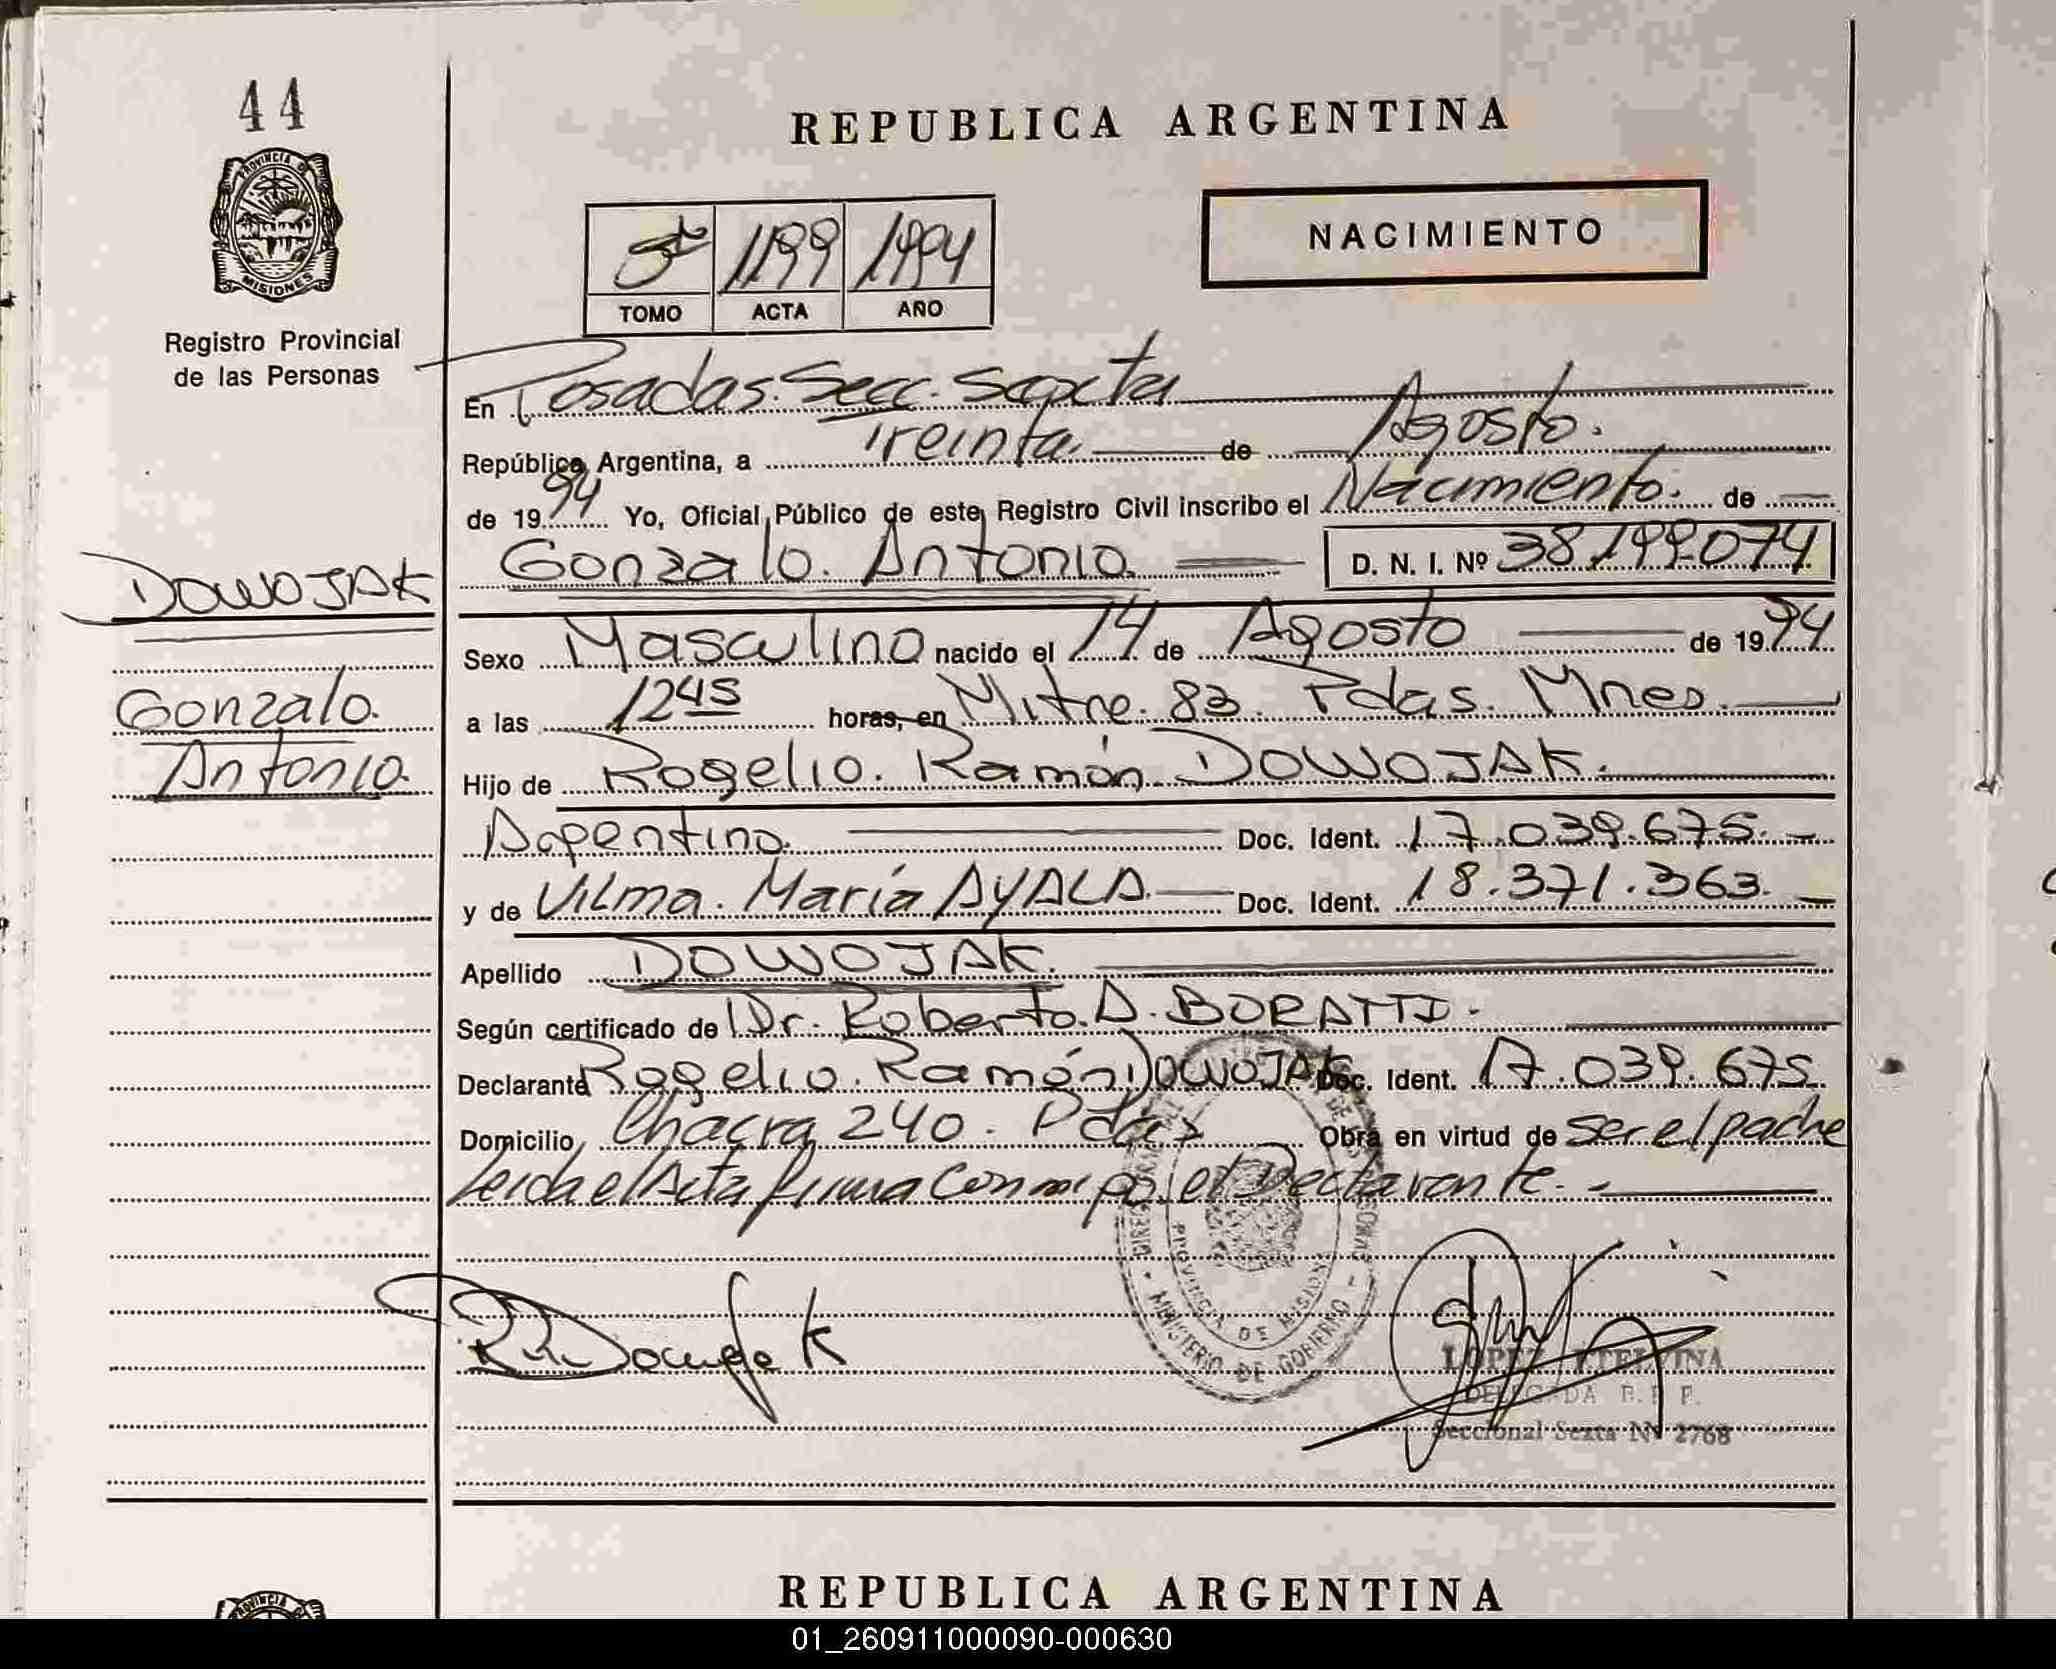 44
REPUBLICA ARGENTINA
PROVINCIA DE
MISIONES
Registro Provincial
de las Personas
5to 1199 1994
TOMO ACTA AÑO
NACIMIENTO
En Posadas. Secc. Sexta
República Argentina, a Treinta. de Agosto.
de 1994 Yo, Oficial Público de este Registro Civil inscribo el Nacimiento. de
Gonzalo. Antonio. D. N. I. Nº 38.199.074
DOWOJAK
Gonzalo.
Antonio.
Sexo Masculino nacido el 14 de Agosto de 1994
a las 1245 horas, en Mitre. 83. Pdas. Mnes.
Hijo de Rogelio. Ramón DOWOJAK.
Argentino. Doc. Ident. 17.039.675.
y de Vilma. María AYALA. Doc. Ident. 18.371.363.
Apellido DOWOJAK.
Según certificado de Dr. Roberto. A. BORATTI.
Declarante Rogelio. Ramón DOWOJAK Doc. Ident. 17.039.675
Domicilio Chacra 240. Pdas Obra en virtud de ser el padre
Leida el Acta firma Conmigo el Declarante.
PROVINCIA DE MISIONES
MINISTERIO DE GOBIERNO
R R Dowojak
LOPEZ ETELVINA
DELEGADA R. P. P.
Seccional Sexta Nº 2768
REPUBLICA ARGENTINA
PROVINCIA
01_260911000090-000630